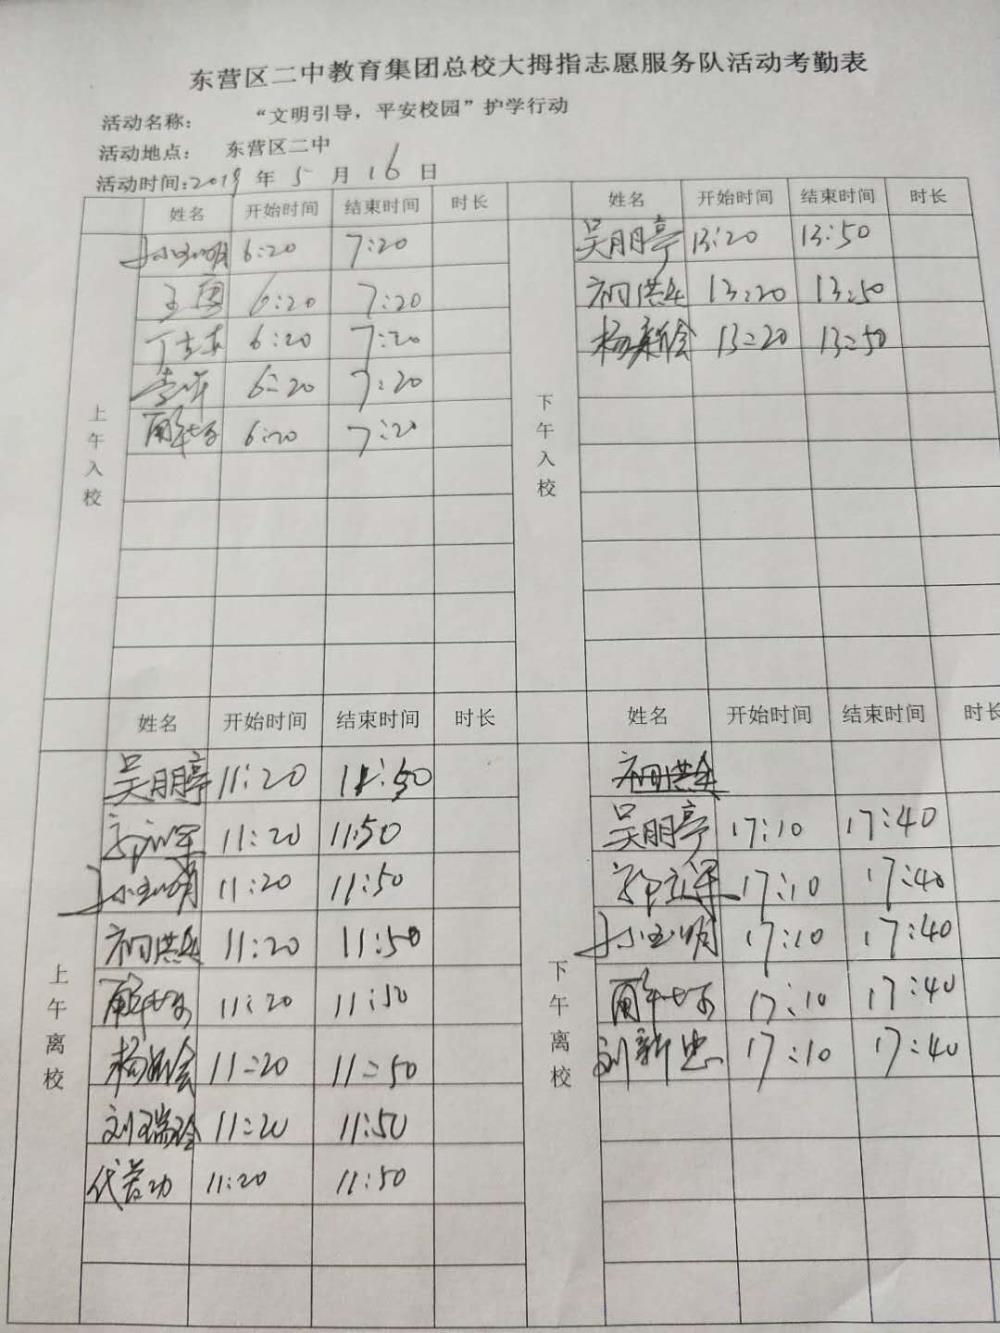 东营区二中教育集团总校大拇指志愿服务队活动考勤表
活动名称: “文明引导，平安校园”护学行动
活动地点: 东营区二中
活动时间:2019年5月16日
上午入校
姓名 开始时间 结束时间 时长
6:20 7:20
6:20 7:20
6:20 7:20
6:20 7:20
6:20 7:20
下午入校
姓名 开始时间 结束时间 时长
吴朋亭 13:20 13:50
初洪兵 13:20 13:50
杨新会 13:20 13:50
上午离校
姓名 开始时间 结束时间 时长
吴朋亭 11:20 11:50
11:20 11:50
孙玉明 11:20 11:50
初洪兵 11:20 11:50
11:20 11:50
杨新会 11:20 11:50
刘瑞玲 11:20 11:50
11:20 11:50
下午离校
姓名 开始时间 结束时间 时长
吴朋亭 17:10 17:40
17:10 17:40
孙玉明 17:10 17:40
17:10 17:40
刘新忠 17:10 17:40